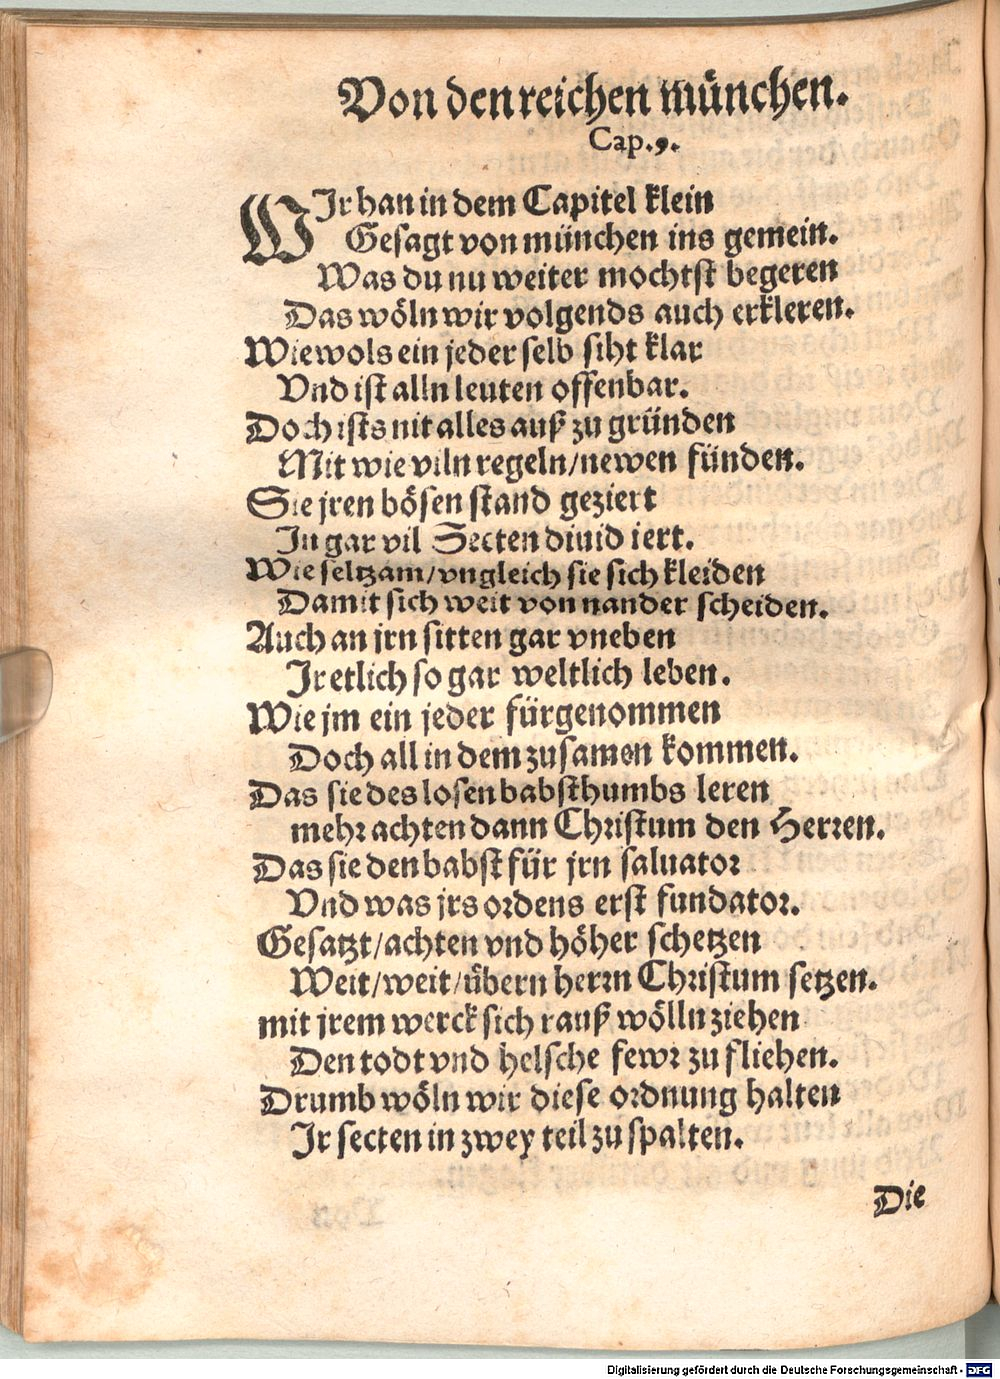 Von den reichen münchen.
Cap. 9.
WIr han in dem Capitel klein
Gesagt von münchen ins gemein.
Was du nu weiter mochtst begeren
Das wöln wir volgends auch erkleren.
Wiewols ein jeder selb siht klar
Vnd ist alln leuten offenbar.
Doch ists nit alles auß zu gründen
Mit wie viln regeln/newen fünden.
Sie jren bösen stand geziert
In gar vil Secten diuid iert.
Wie seltzam/vngleich sie sich kleiden
Damit sich weit von nander scheiden.
Auch an jrn sitten gar vneben
Ir etlich so gar weltlich leben.
Wie jm ein jeder fürgenommen
Doch all in dem zusamen kommen.
Das sie des losen babsthumbs leren
mehr achten dann Christum den Herren.
Das sie den babst für jrn saluator
Vnd was jrs ordens erst fundator.
Gesatzt/achten vnd höher schetzen
Weit/weit/übern herrn Christum setzen.
mit jrem werck sich rauß wölln ziehen
Den todt vnd helsche fewr zu fliehen.
Drumb wöln wir diese ordnung halten
Ir secten in zwey teil zu spalten.
Die
Digitalisierung gefördert durch die Deutsche Forschungsgemeinschaft - DFG